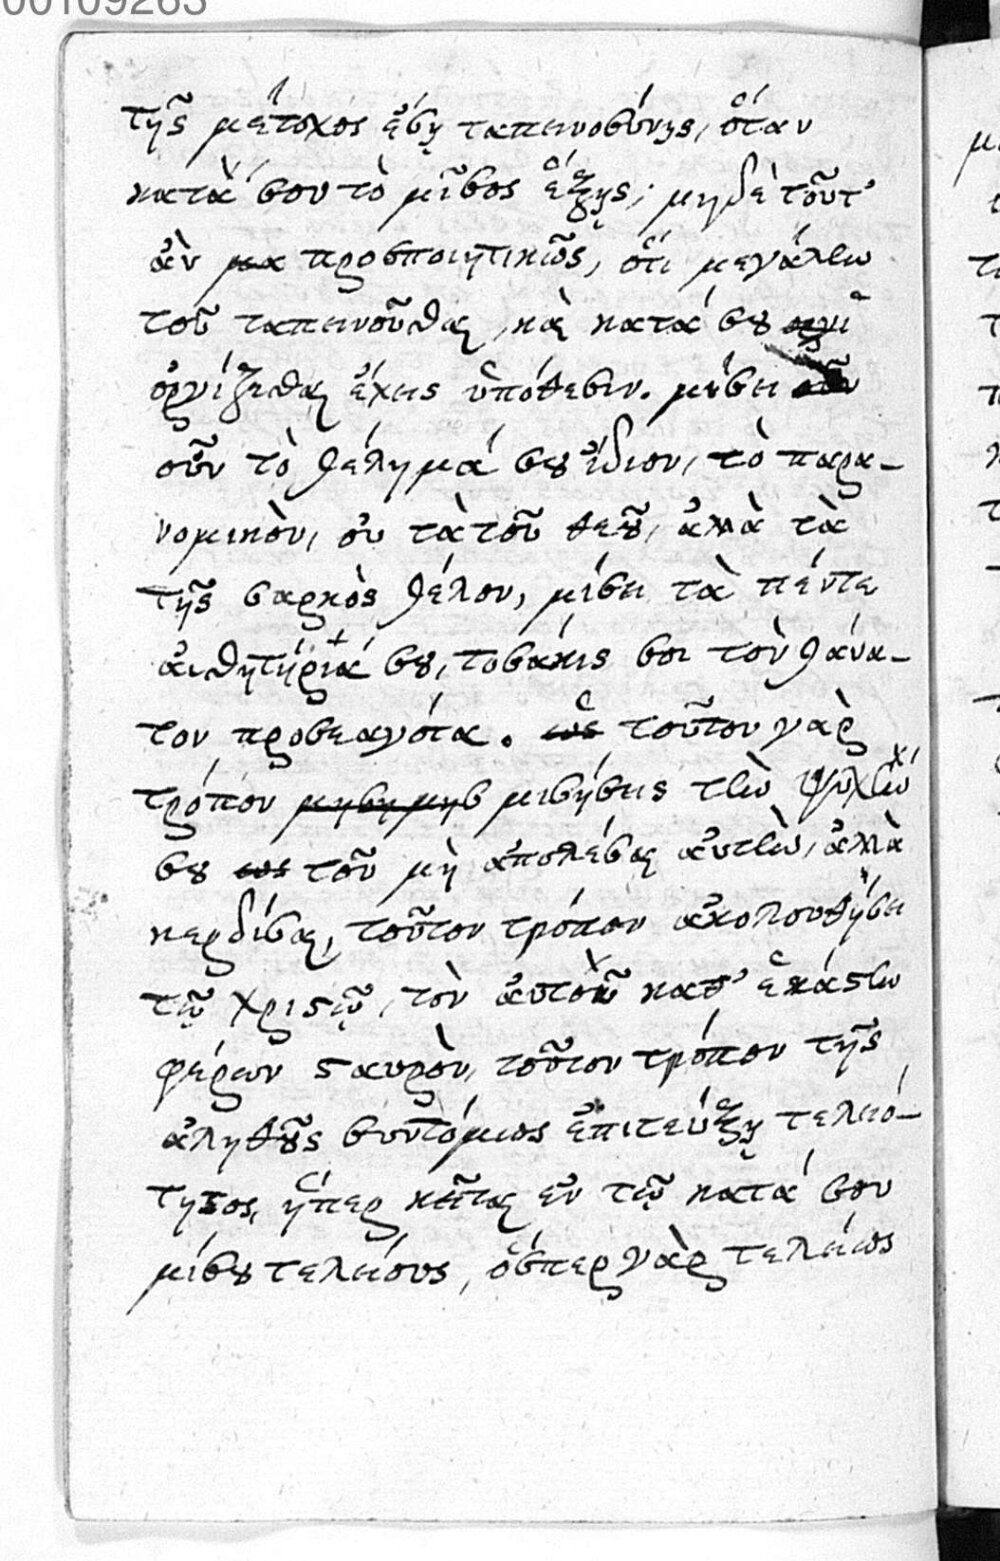 00109263
τῆς μέτοχος ἔσῃ ταπεινοσύνης, ὅταν
κατὰ σου τὸ μῖσος ἕξῃς, μηδὲ τοῦτ'
ἀν προσποιητικῶς, ὅτι μεγάλην
τοῦ ταπεινοῦσθαι, καὶ κατά σου
ὀργίζεσθαι ἔχεις ὑπόθεσιν. μίσει
οὖν τὸ θέλημά σου ἴδιον, τὸ παρα-
νομικὸν, οὐ τὰ τοῦ θεοῦ, ἀλλὰ τὰ
τῆς σαρκὸς θέλον, μίσει τὰ πέντε
αἰσθητήριά σου, τοσάκις σοι τὸν θάνα-
τον προσεαγότα. τοῦτον γὰρ
τρόπον μισήσεις τὴν ψυχήν
σου τοῦ μὴ ἀπολέσαι αὐτὴν, ἀλλὰ
κερδίσαι, τοῦτον τρόπον ἀκολουθήσει
τῷ χριστῷ, τὸν αὐτοῦ καθ' ἑκάστην
φέρων σταυρὸν, τοῦτον τρόπον τῆς
ἀληθοῦς συντόμως ἐπιτεύξῃ τελειό-
τητος, ἥπερ κεῖται ἐν τῷ κατά σου
μίσου τελείους, ὅσπερ γὰρ τελείως